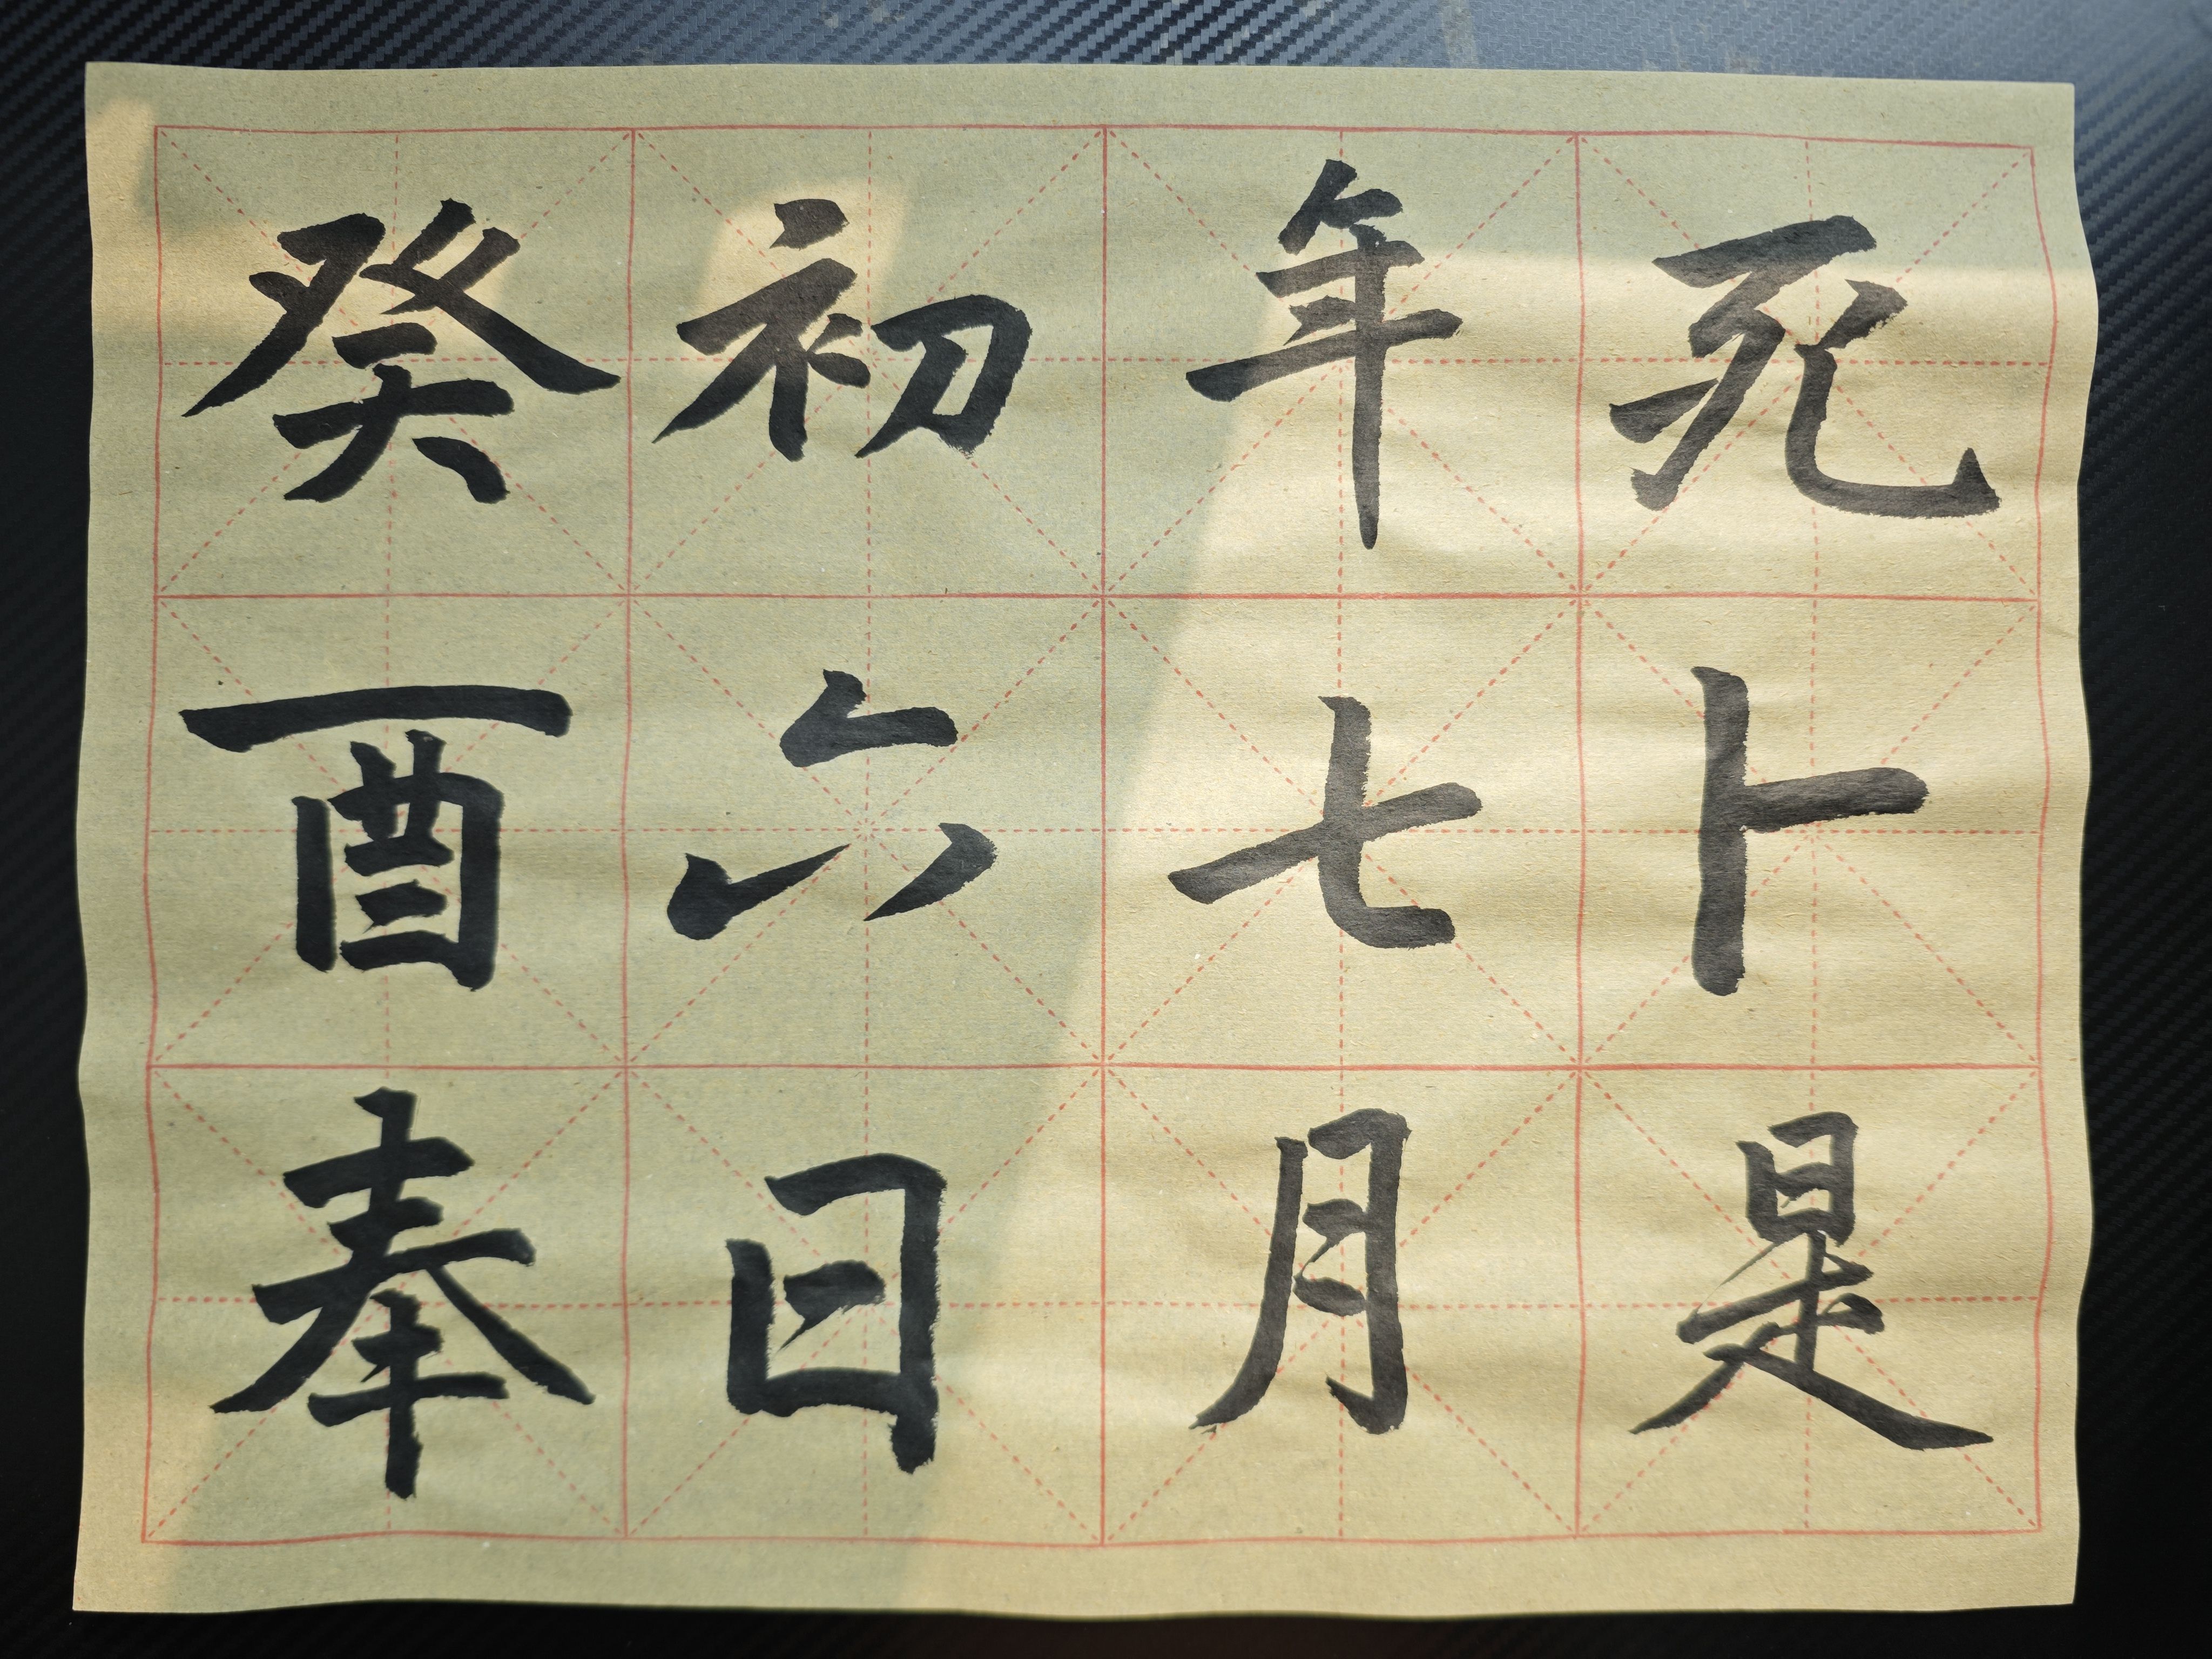 死卜是
年七月
初六日
癸酉奉